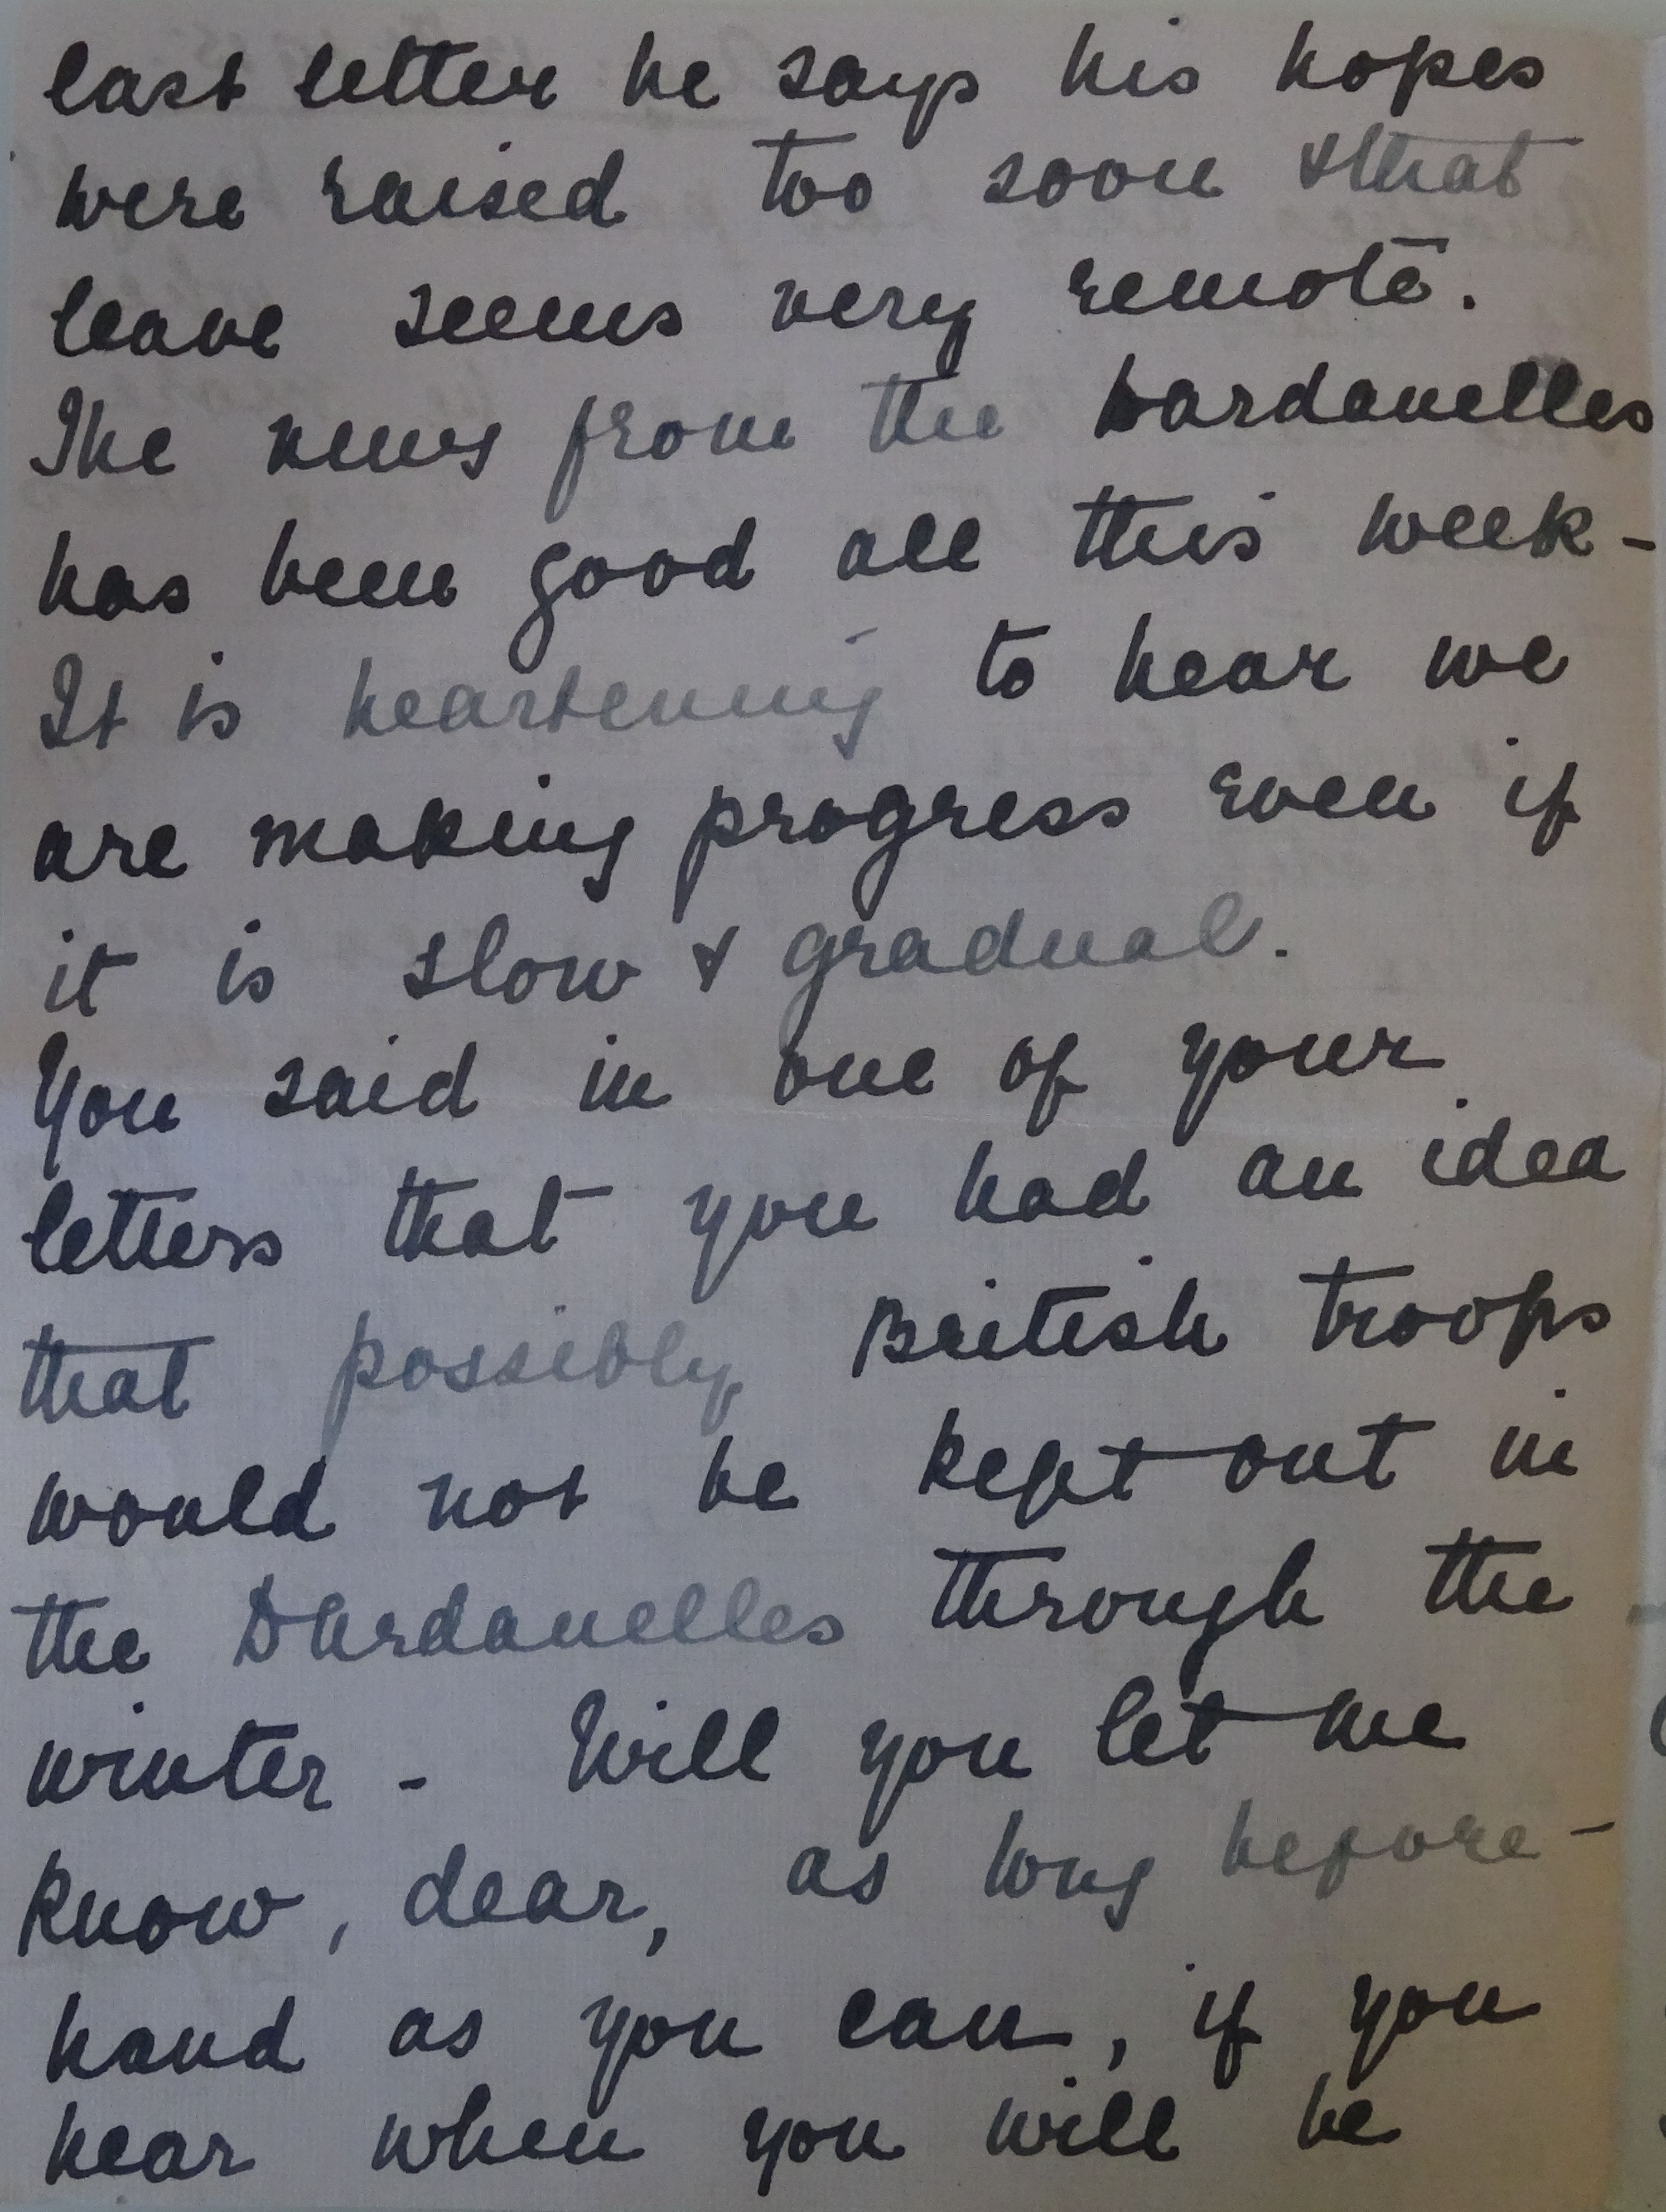 last letter he says his hopes
were raised too soon & that
leave seems very remote.
The news from the Dardanelles
has been good all this week -
It is heartening to hear we
are making progress even if
it is slow & gradual.
You said in one of your
letters that you had an idea
that possibly British troops
would not be kept out in
the Dardanelles through the
winter - Will you let me
know, dear, as long before-
hand as you can, if you
hear when you will be